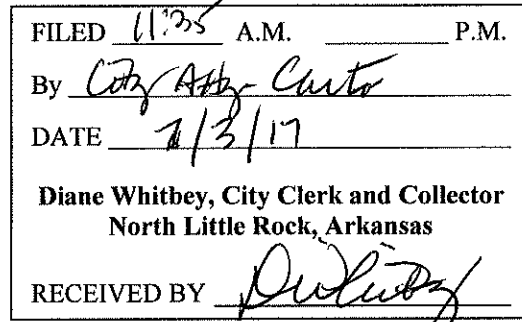 FILED 11:35 A.M. P.M.
By City Atty Carter
DATE 1/3/17
Diane Whitbey, City Clerk and Collector
North Little Rock, Arkansas
RECEIVED BY DWhitbey